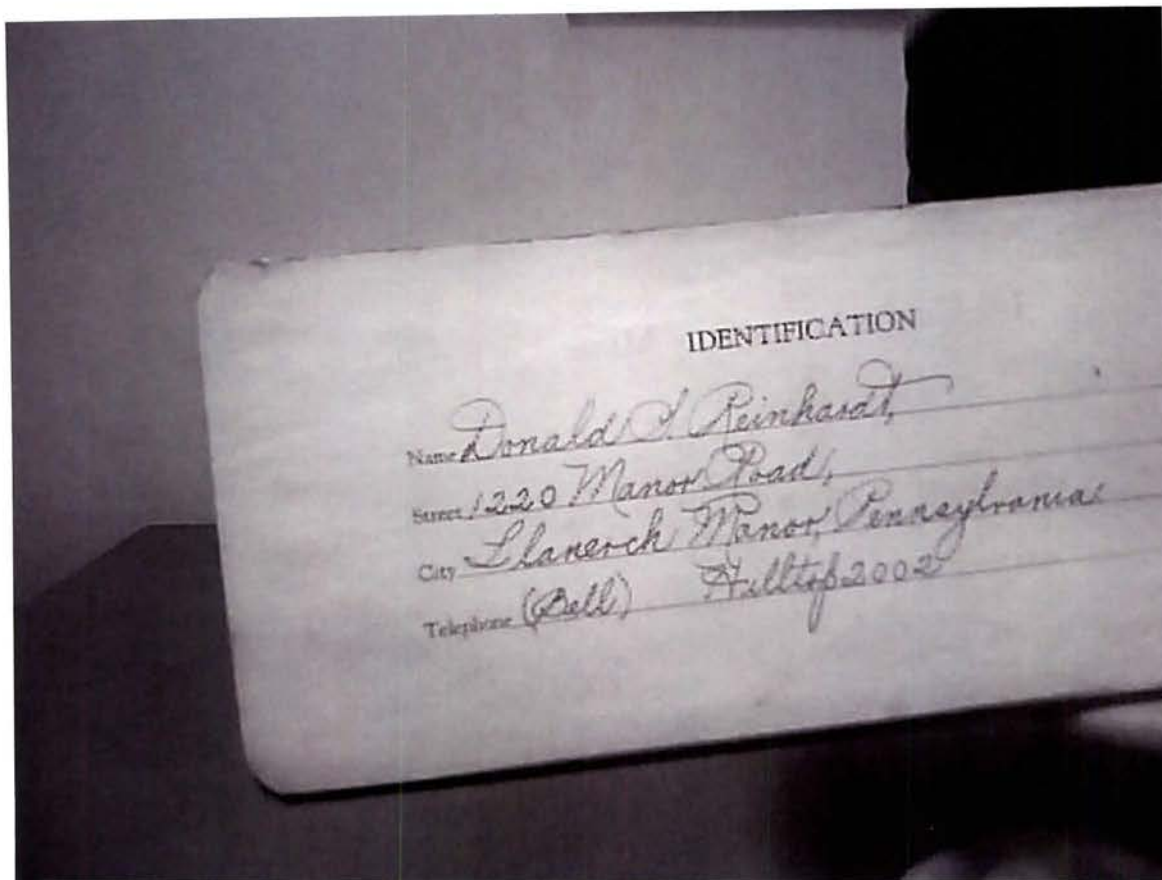 IDENTIFICATION
Name Donald S. Reinhardt,
Street 1220 Manor Road,
City Llanerch Manor, Pennsylvania
Telephone (Bell) Hilltop 2002